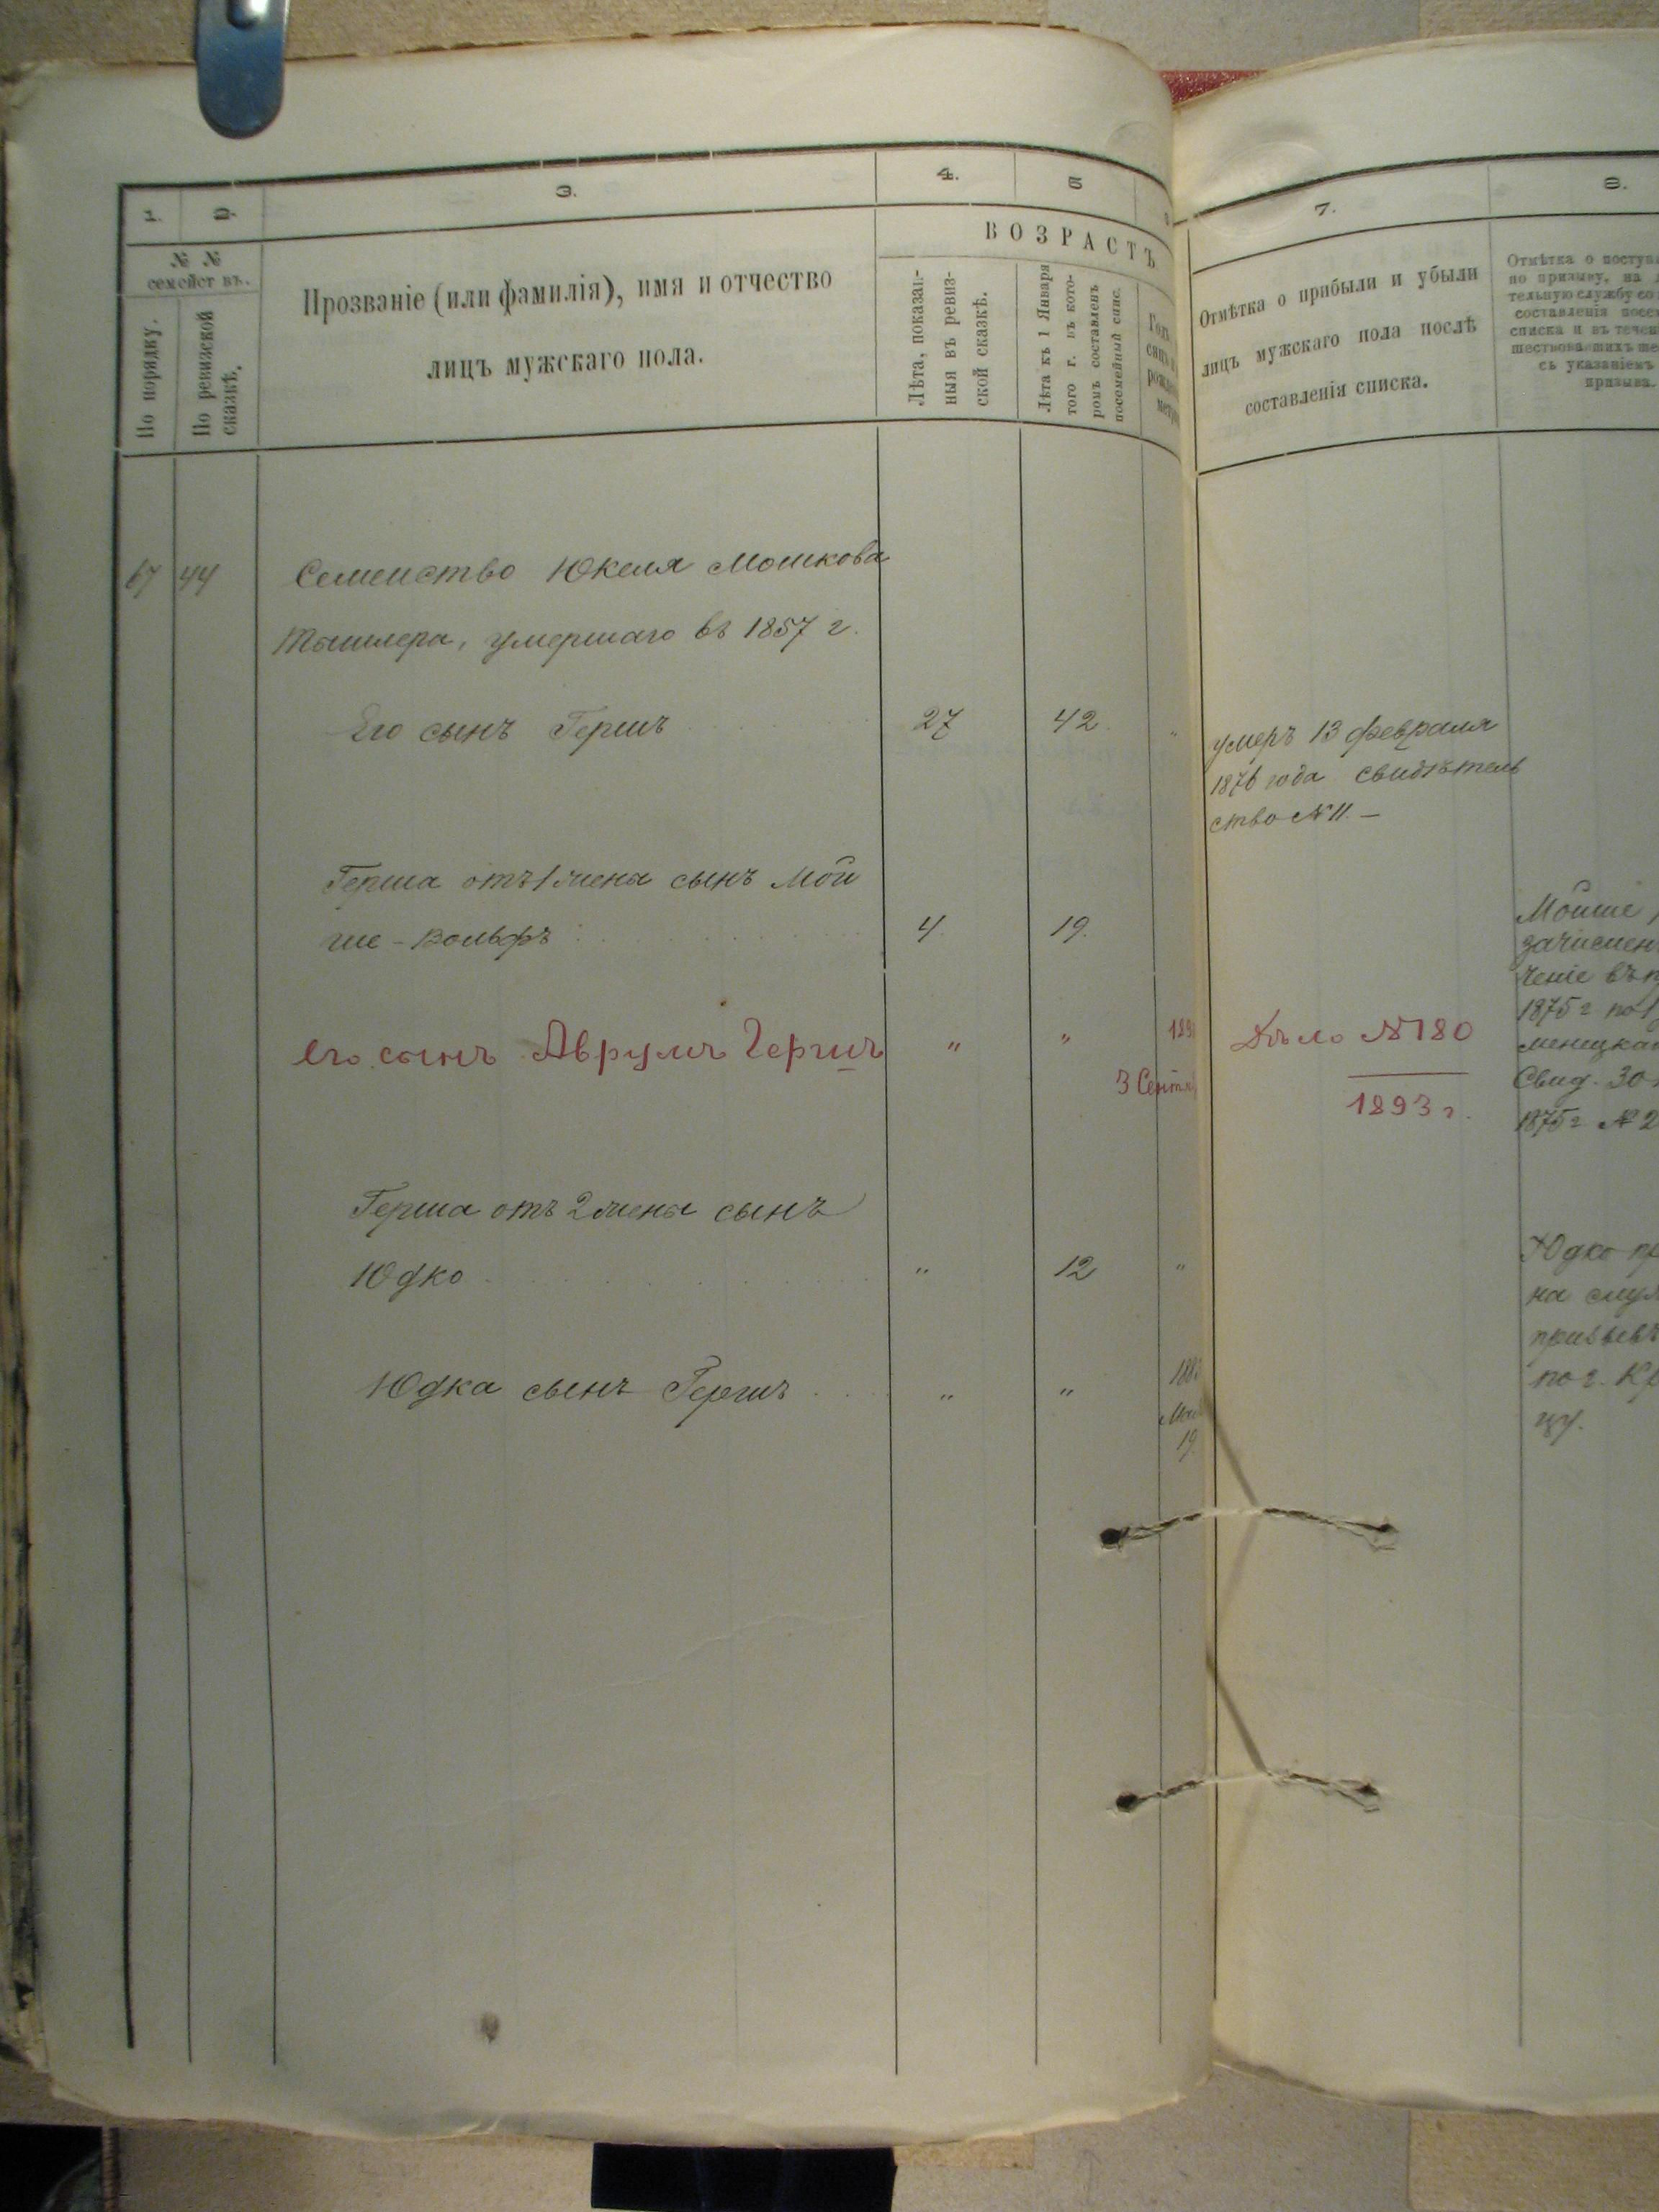 1.
2.
3.
4.
5
7.
8.
№ №
семействъ.
По порядку.
По ревизской
сказкѣ.
Прозваніе (или фамилія), имя и отчество
лицъ мужскаго пола.
ВОЗРАСТЪ
Лѣта, показан-
ныя въ ревиз-
ской сказкѣ.
Лѣта къ 1 Января
того г. въ кото-
ромъ составленъ
посемейный спис.
Отмѣтка о прибыли и убыли
лицъ мужскаго пола послѣ
составленія списка.
Отмѣтка о
по призыву, на
тельную службу со
составленія
списка и въ
съ указаніемъ
призыва.
67 44 Семейство Юкеля Мошкова
Тышлера, умершаго въ 1857 г.
Его сынъ Гершъ 27 42 "
умеръ 13 февраля
1876 года свидѣтель
ство № 11. —
Герша отъ 1 жены сынъ Мой
ше-Вольфъ 4. 19.
Мойше
1875 г.
Свид. 30
1875 г. № 2
его сынъ Аврумъ Гершъ " "
3
Дѣло № 180
1893 г.
Герша отъ 2 жены сынъ
Юдко " 12 "
Юдко
на
по г.
цу.
Юдка сынъ Гершъ " "
19